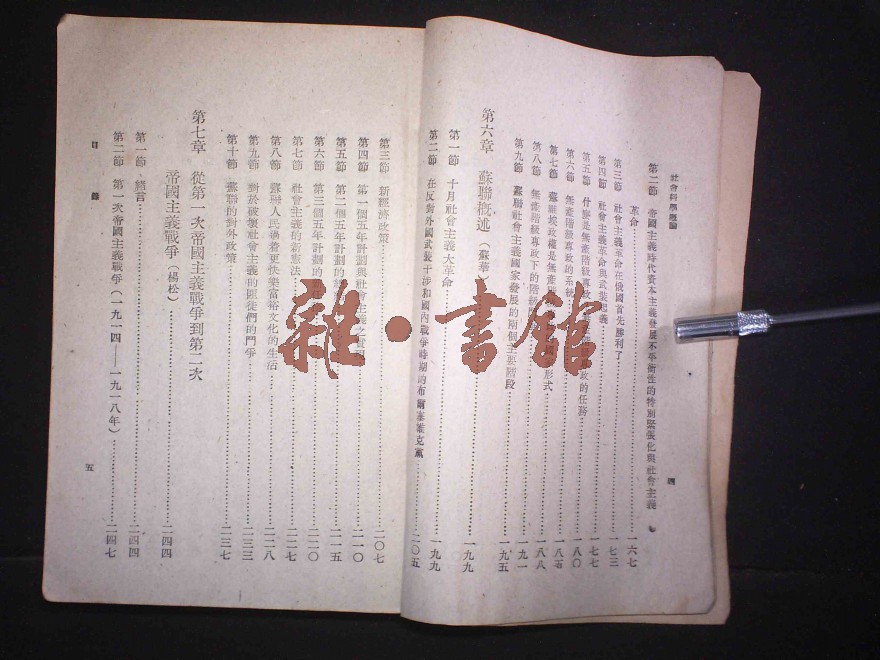 社會科學概論
四
第二節 帝國主義時代資本主義發展不平衡性的特別緊張化與社會主義
革命 一六七
第三節 社會主義革命在俄國首先勝利了 一七三
第四節 社會主義革命與武裝起義 一七七
第五節 什麼是無產階級專政 專政的任務 一八〇
第六節 無產階級專政的系統 一八五
第七節 蘇維埃政權是無產階 形式 一八八
第八節 無產階級專政下的階級 一九一
第九節 蘇聯社會主義國家發展的兩個主要階段 一九五
第六章 蘇聯概述(蘇華) 一九九
第一節 十月社會主義大革命 一九九
第二節 在反對外國武裝干涉和國內戰爭時期的布爾塞維克黨 二〇五
第三節 新經濟政策 二〇七
第四節 第一個五年計劃與社會主義 二一〇
第五節 第二個五年計劃的 二一五
第六節 第三個五年計劃的 二二〇
第七節 社會主義的新憲法 二二七
第八節 蘇聯人民過着更快樂富裕文化的生活 二二八
第九節 對於破壞社會主義的匪徒們的鬥爭 二三三
第十節 蘇聯的對外政策 二三七
第七章 從第一次帝國主義戰爭到第二次
帝國主義戰爭(楊松) 二四四
第一節 緒言 二四四
第二節 第一次帝國主義戰爭(一九一四——一九一八年) 二四七
目錄
五
雜·書館